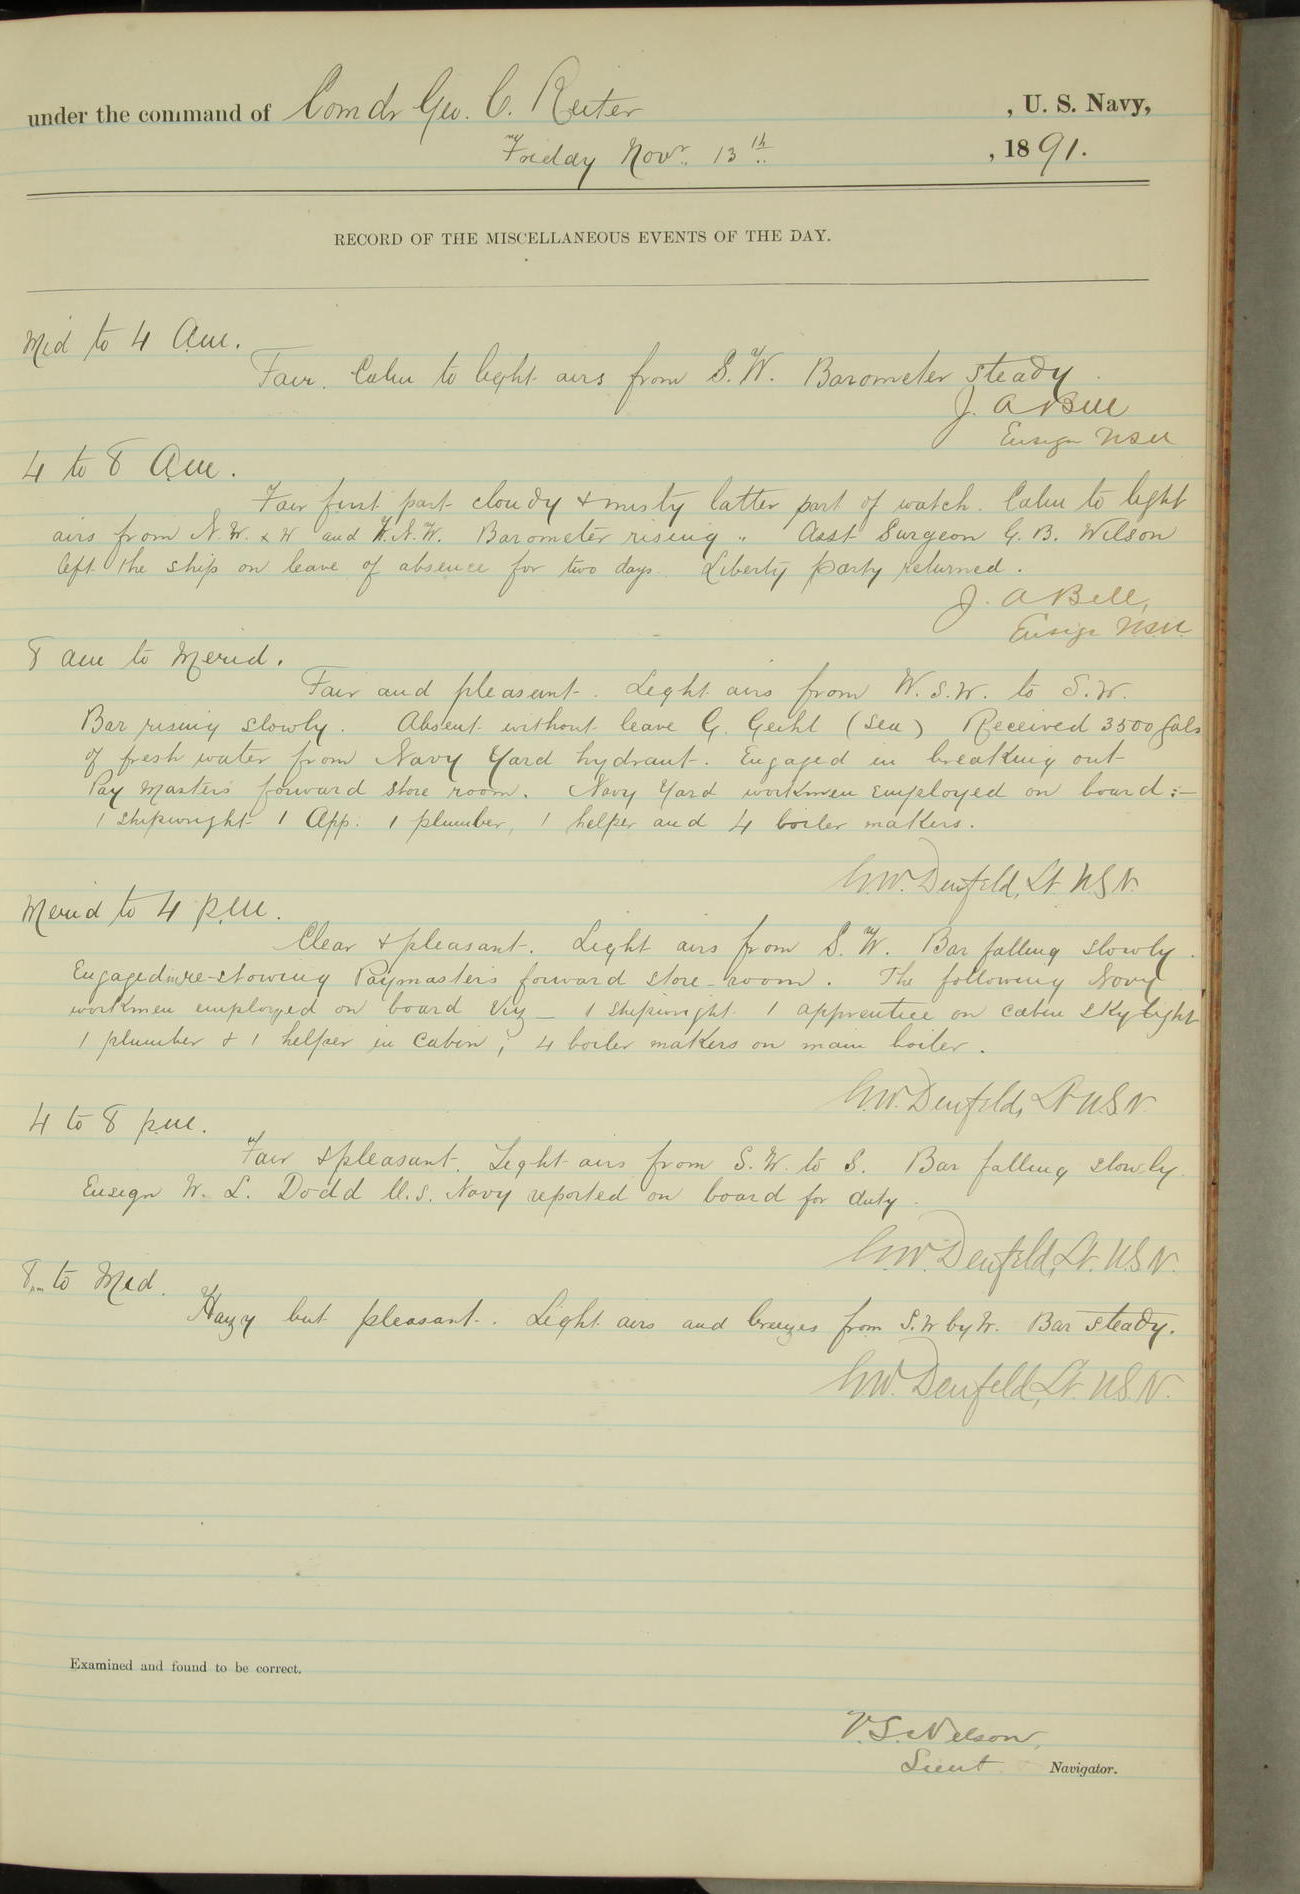 under the command of Comdr Geo. C. Reiter , U. S. Navy,
Friday Novr. 13th , 1891.
RECORD OF THE MISCELLANEOUS EVENTS OF THE DAY.
Mid to 4 Am.
Fair. Calm to light airs from S.W. Barometer steady.
J. A Bell
Ensign USN
4 to 8 Am.
Fair first part cloudy & misty latter part of watch. Calm to light
airs from N.W. & W and W.N.W. Barometer rising. Asst Surgeon G. B. Wilson
left the ship on leave of absence for two days. Liberty party returned.
J. A Bell,
Ensign USN
8 am to Merid.
Fair and pleasant. Light airs from W.S.W. to S.W.
Bar rising slowly. Absent without leave G. (Sea) Received 3500 gals
of fresh water from Navy Yard hydrant. Engaged in breaking out
Pay Masters forward store room. Navy Yard workmen employed on board:—
1 shipwright 1 App. 1 plumber, 1 helper and 4 boiler makers.
G.W. Denfeld, Lt. U.S.N.
Merid to 4 p.m.
Clear & pleasant. Light airs from S.W. Bar falling slowly.
Engaged in re-stowing Paymasters forward store-room. The following Navy
workmen employed on board viz— 1 shipwright 1 apprentice on cabin skylight
1 plumber & 1 helper in cabin; 4 boiler makers on main boiler.
G.W. Denfeld, Lt U.S.N.
4 to 8 p.m.
Fair & pleasant. Light airs from S.W. to S. Bar falling slowly.
Ensign W. L. Dodd U.S. Navy reported on board for duty.
G.W. Denfeld, Lt. U.S.N.
8 pm to Mid.
Hazy but pleasant. Light airs and breezes from S.W by W. Bar steady.
G.W. Denfeld, Lt. U.S.N.
Examined and found to be correct.
V.S. Nelson,
Lieut Navigator.